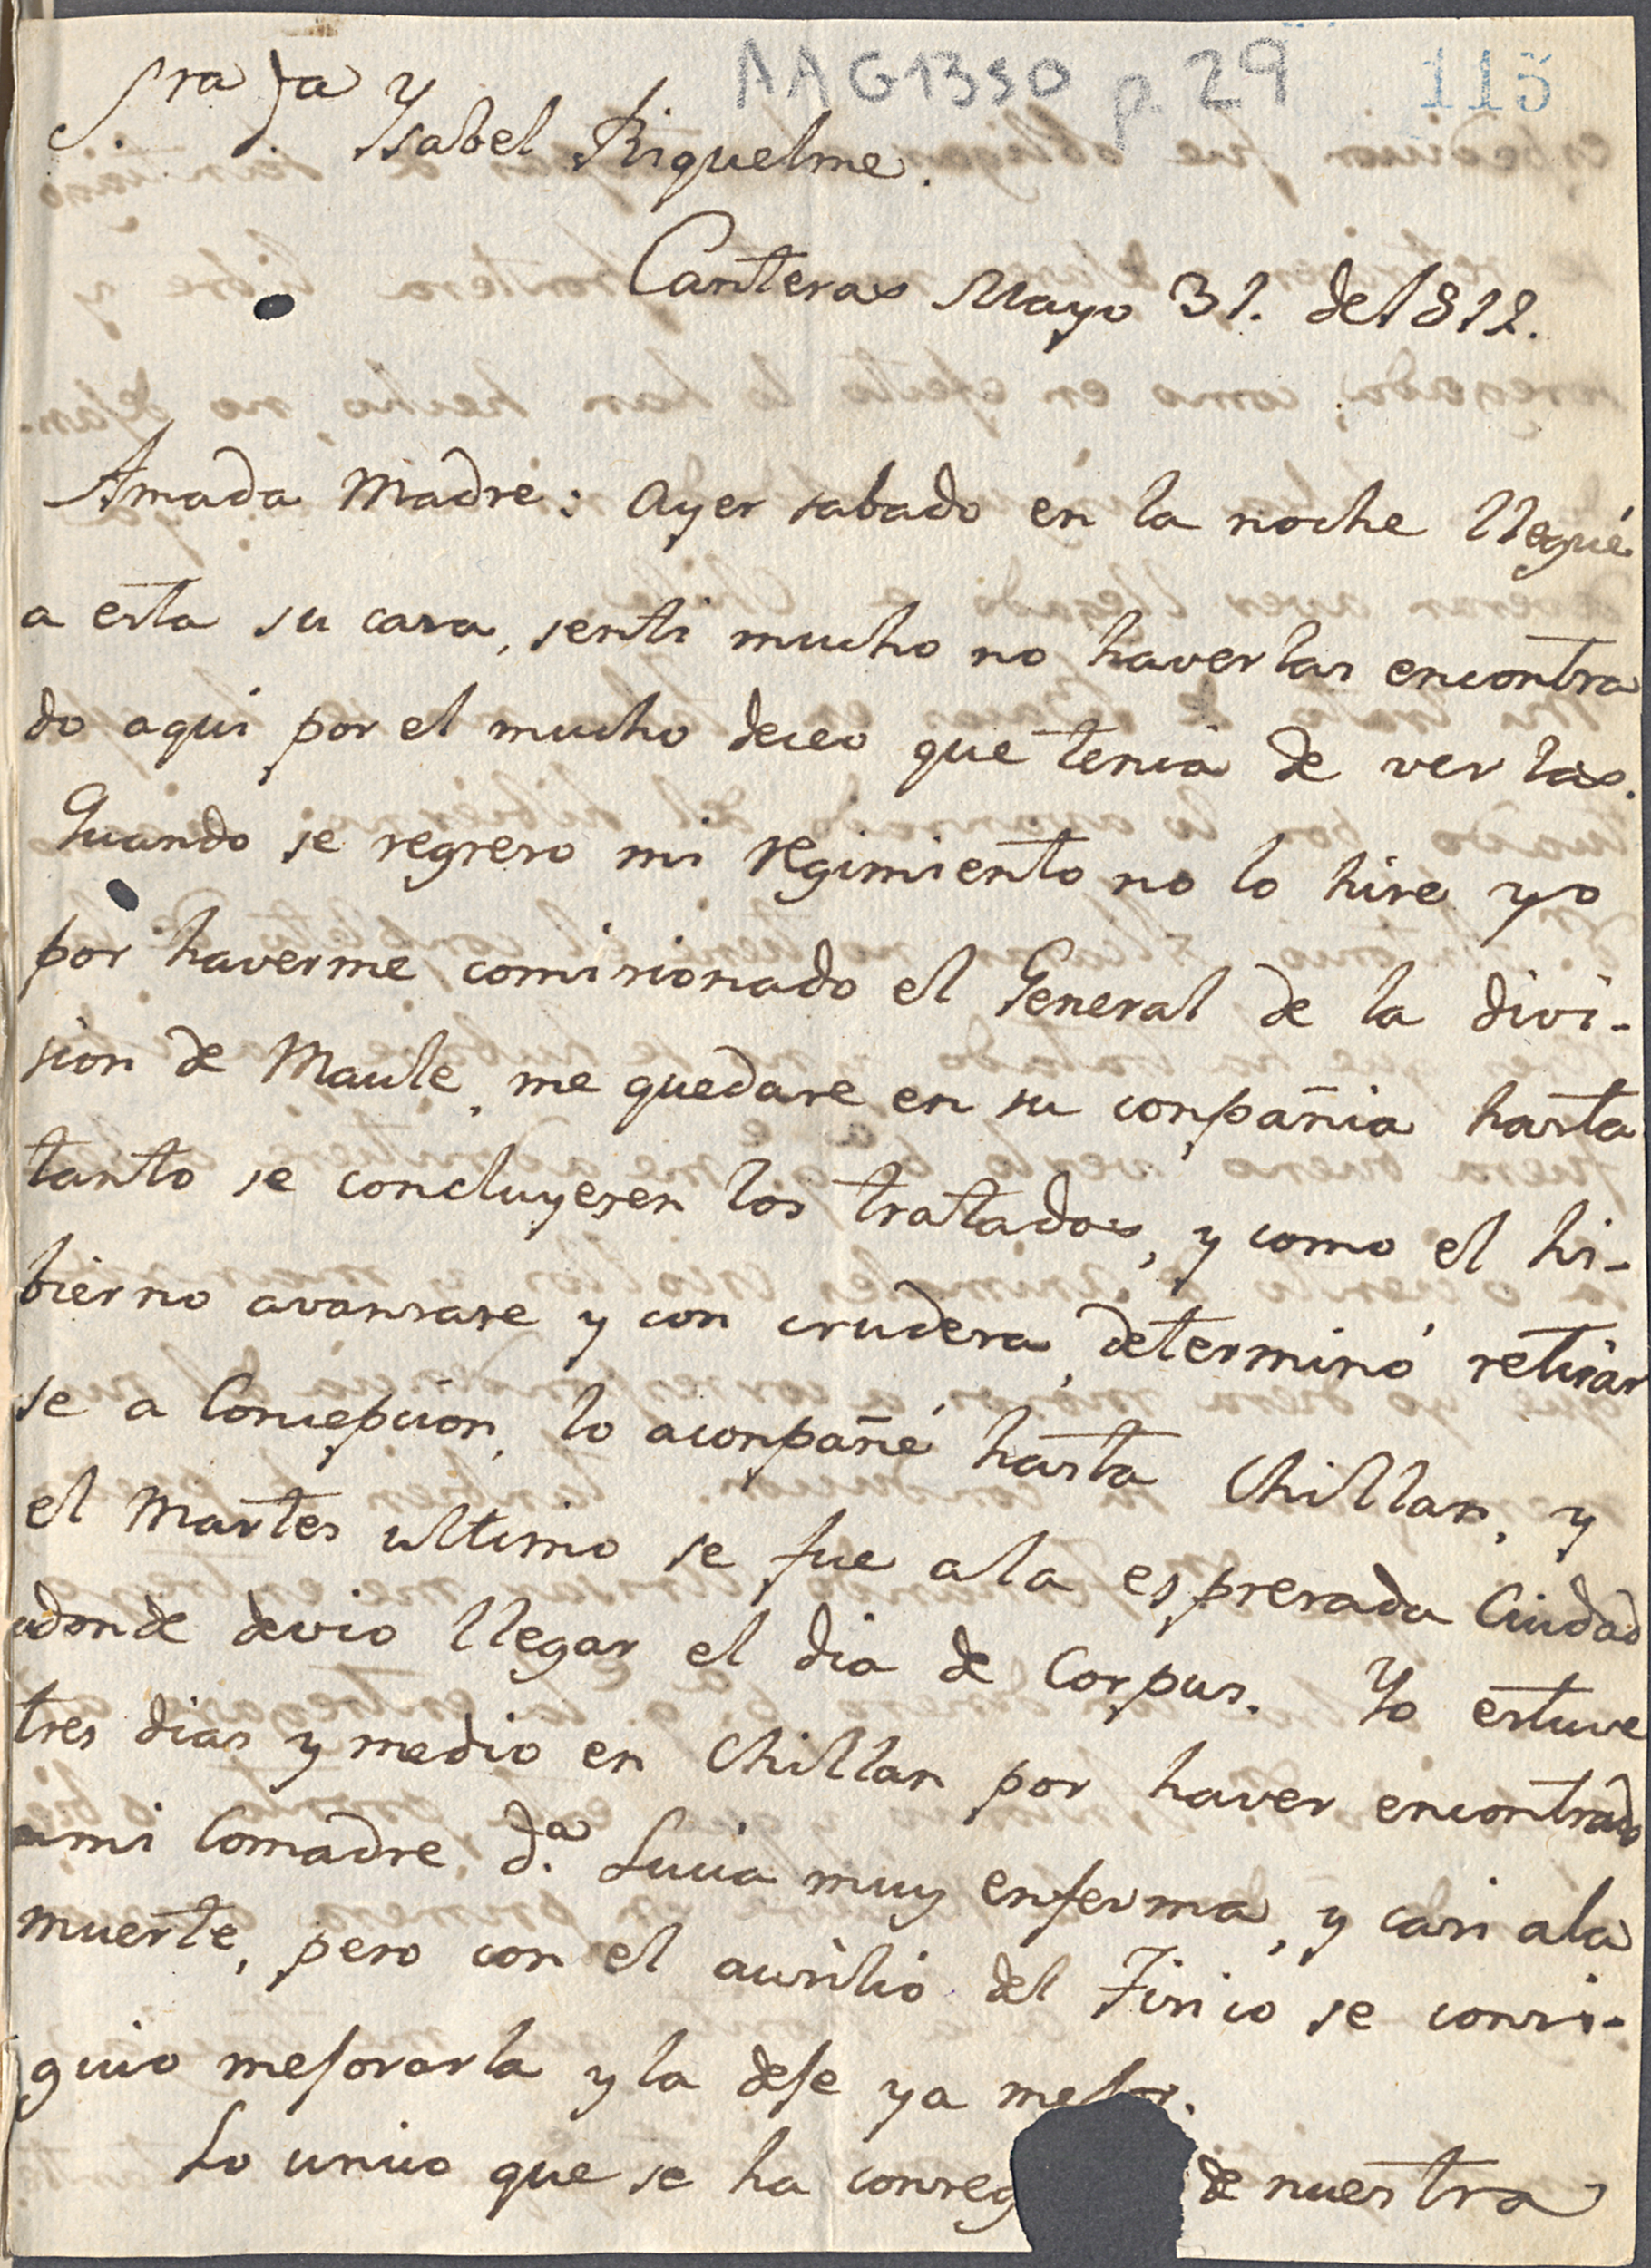 AAG1350 p. 29 115
Sra Da Ysabel Riquelme.
Canteras Mayo 31. de 1812.
Amada Madre: Ayer sabado en la noche llegué
a esta su casa, senti mucho no haverlas encontra
do aqui por el mucho deceo que tenia de verlas.
Quando se regreso mi regimiento no lo hise yo
por haverme comisionado el General de la divi-
sion de Maule, me quedase en su conpañia hasta
tanto se concluyesen los tratados, y como el hi-
bierno avansase y con crudesa, determinó retirar
se a Concepcion, lo aconpañé hasta Chillan, y
el Martes ultimo se fue ala espresada Ciudad
adonde devio llegar el dia de Corpus. Yo estuve
tres dias y medio en Chillan por haver encontrado
a mi Comadre d.a Lucia muy enferma, y casi ala
muerte, pero con el ausilio del Fisico se consi-
guio mejorarla y la deje ya mejor.
Lo unico que se ha conseg de nuestra